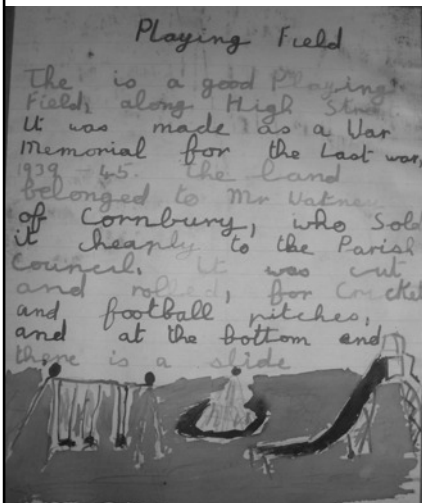 Playing Field
The is a good Playing
Field, along High Stre
It was made as a War
Memorial for the Last war,
1939 - 45. the land
belonged to Mr
of Cornbury, who Sold
it cheaply to the Parish
Council. It was cut
and rolled, for Cricket
and football pitches,
and at the bottom end
there is a slide